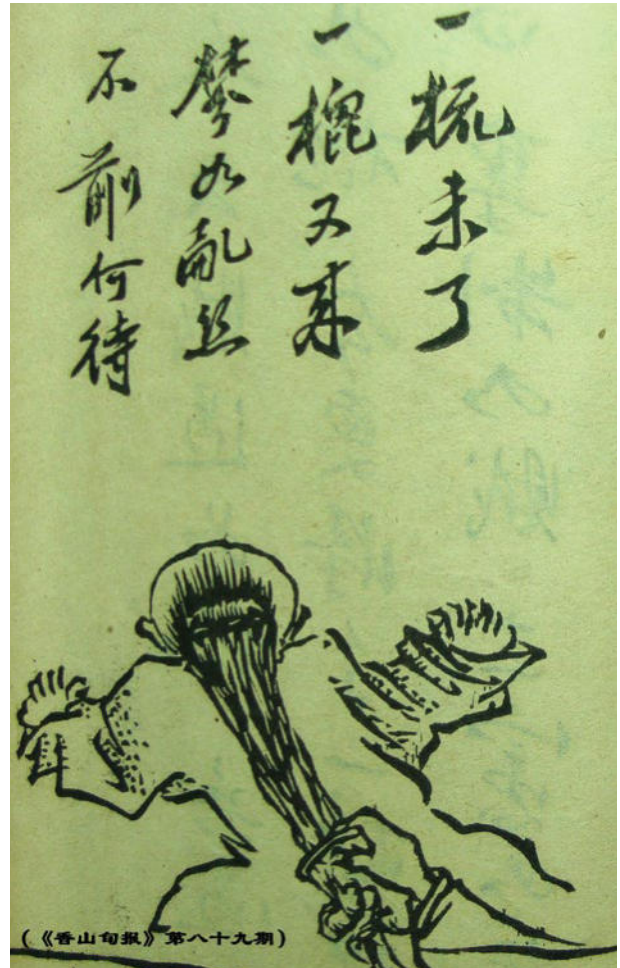 一梳未了
一又来
棼如亂絲
不剪何待
（《香山旬报》第八十九期）